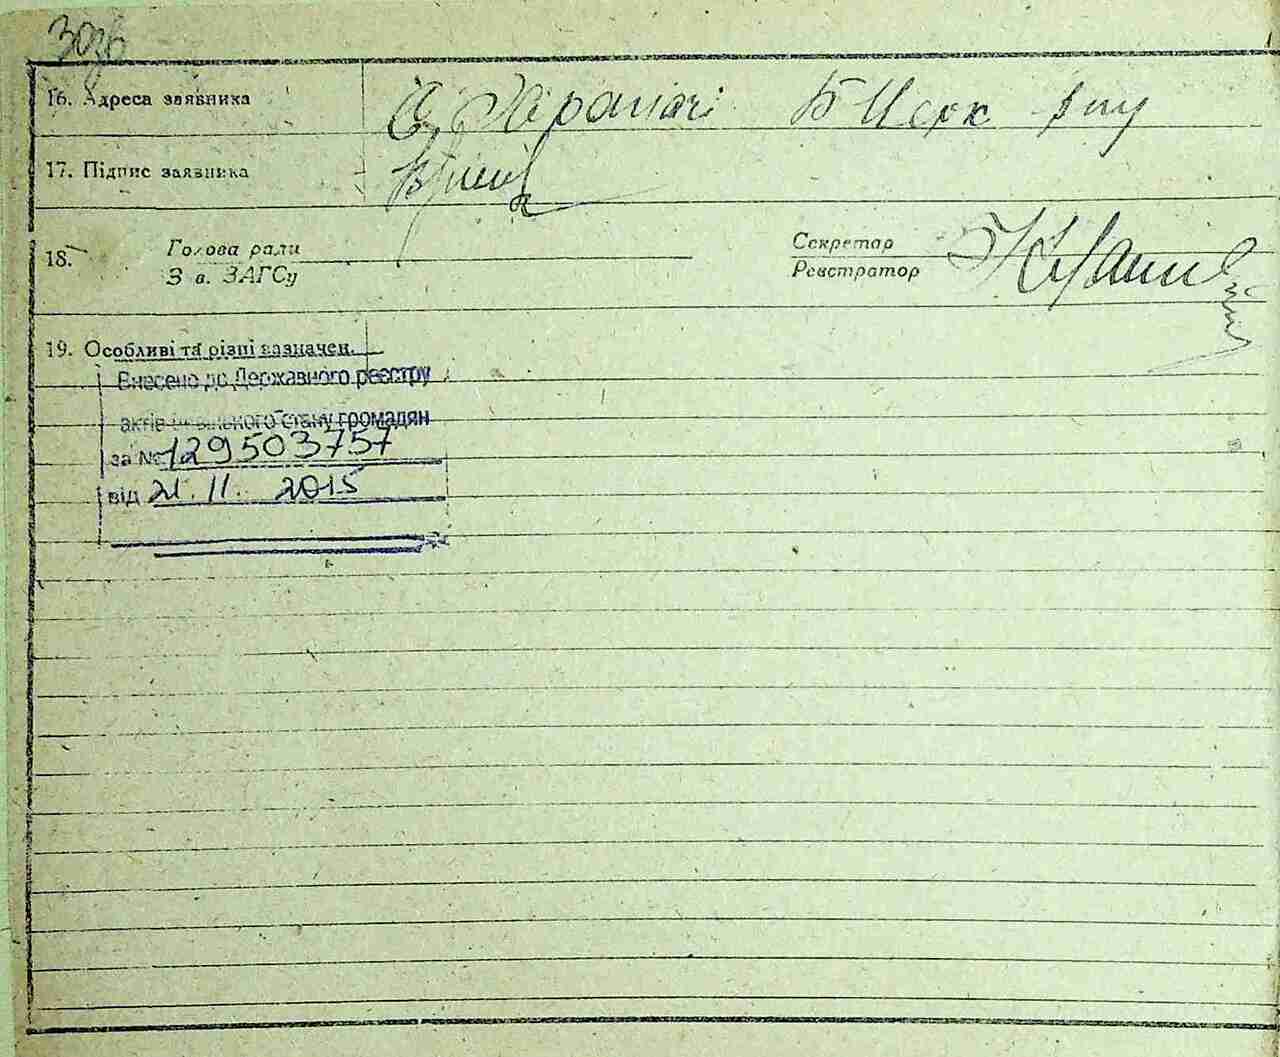 16. Адреса заявника С. Храпачі Б Церк р ну
17. Підпис заявника
18. Голова ради Секретар
З в. ЗАГСу Реєстратор
19. Особливі та різні зазначен.
Внесено до Державного реєстру
актів цивільного стану громадян
за № 129503757
від 21.11. 2015